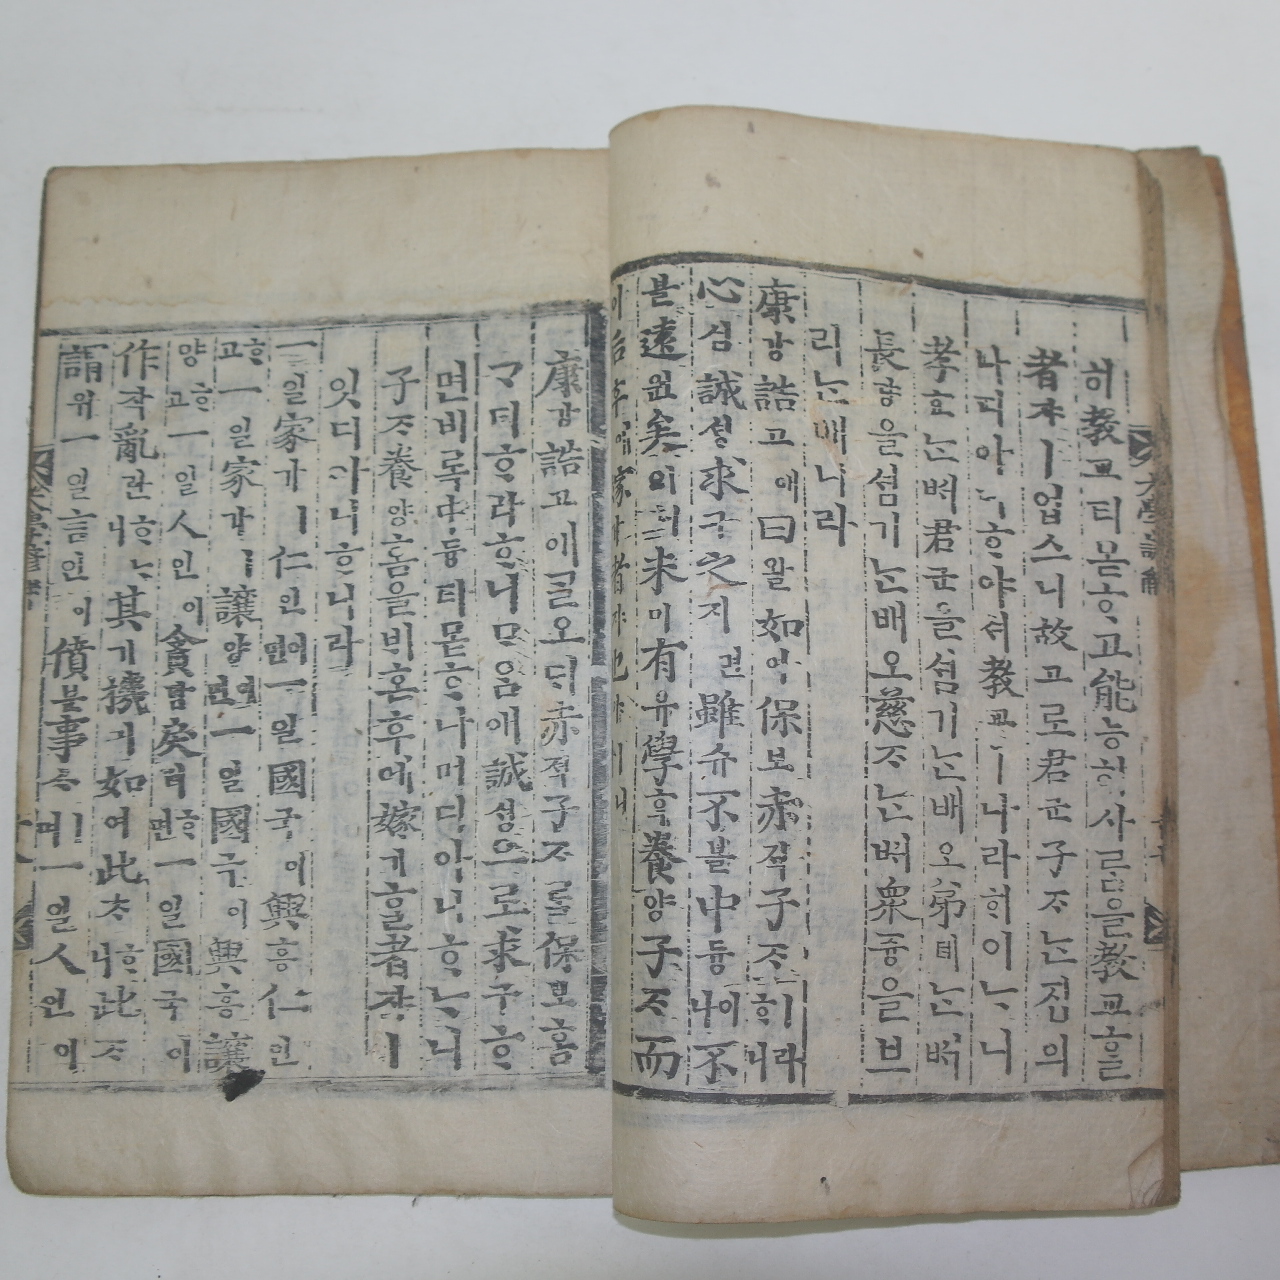 히敎교티몯ᄒᆞ고能능히사ᄅᆞᆷ을敎교ᄒᆞᆯ
者쟈ㅣ업스니故고로君군子ᄌᆞᄂᆞᆫ집의
나디아니ᄒᆞ야셔敎교ㅣ나라히이ᄂᆞ니
孝효ᄂᆞᆫᄡᅥ君군을셤기ᄂᆞᆫ배오弟뎨ᄂᆞᆫᄡᅥ
長댱을셤기ᄂᆞᆫ배오慈ᄌᆞᄂᆞᆫᄡᅥ衆즁을브
리ᄂᆞᆫ배니라
康강誥고애曰왈如여保보赤젹子ᄌᆞㅣ라ᄒᆞ니
心심誠셩求구之지면雖슈不블中듕이나不
블遠원矣의니未미有유學ᄒᆞᆨ養양子ᄌᆞ而
이后후嫁가者쟈也야ㅣ니
康강誥고애ᄀᆞᆯ오ᄃᆡ赤젹子ᄌᆞᄅᆞᆯ保보홈
ᄀᆞ티ᄒᆞ라ᄒᆞ니ᄆᆞᄋᆞᆷ애誠셩으로求구ᄒᆞ
면비록中듕티몯ᄒᆞ나머디아니ᄒᆞᄂᆞ니
子ᄌᆞ養양홈을ᄇᆡ혼후에嫁가ᄒᆞᆯ者쟈ㅣ
잇디아니ᄒᆞ니라
一일家가ㅣ仁인이면一일國국이興흥仁인
ᄒᆞ고一일家가ㅣ讓양이면一일國국이興흥讓
양ᄒᆞ고一일人인이貪탐戾려ᄒᆞ면一일國국이
作작亂란ᄒᆞᄂᆞ니其기機긔如여此ᄎᆞᄒᆞ니此ᄎᆞ
謂위一일言언이僨분事ᄉᆞㅣ며一일人인이